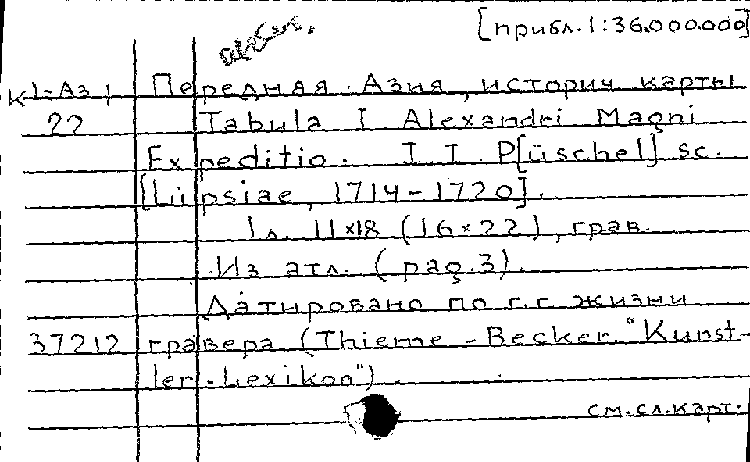 [прибл. 1:36.000.000]
К1-Аз 1 Передняя Азия, историч карты
22 Tabula I Alexandri Magni
Expeditio. I I. P[üschel] sc.
[Lüpsiae, 1714-1720].
1 л. 11×18 (16×22), грав.
Из атл. (pag.3).
Датировано по г.г. жизни
37212 гравера (Thieme-Becker "Kunst-
ler-Lexikon").
см.сл.карт.